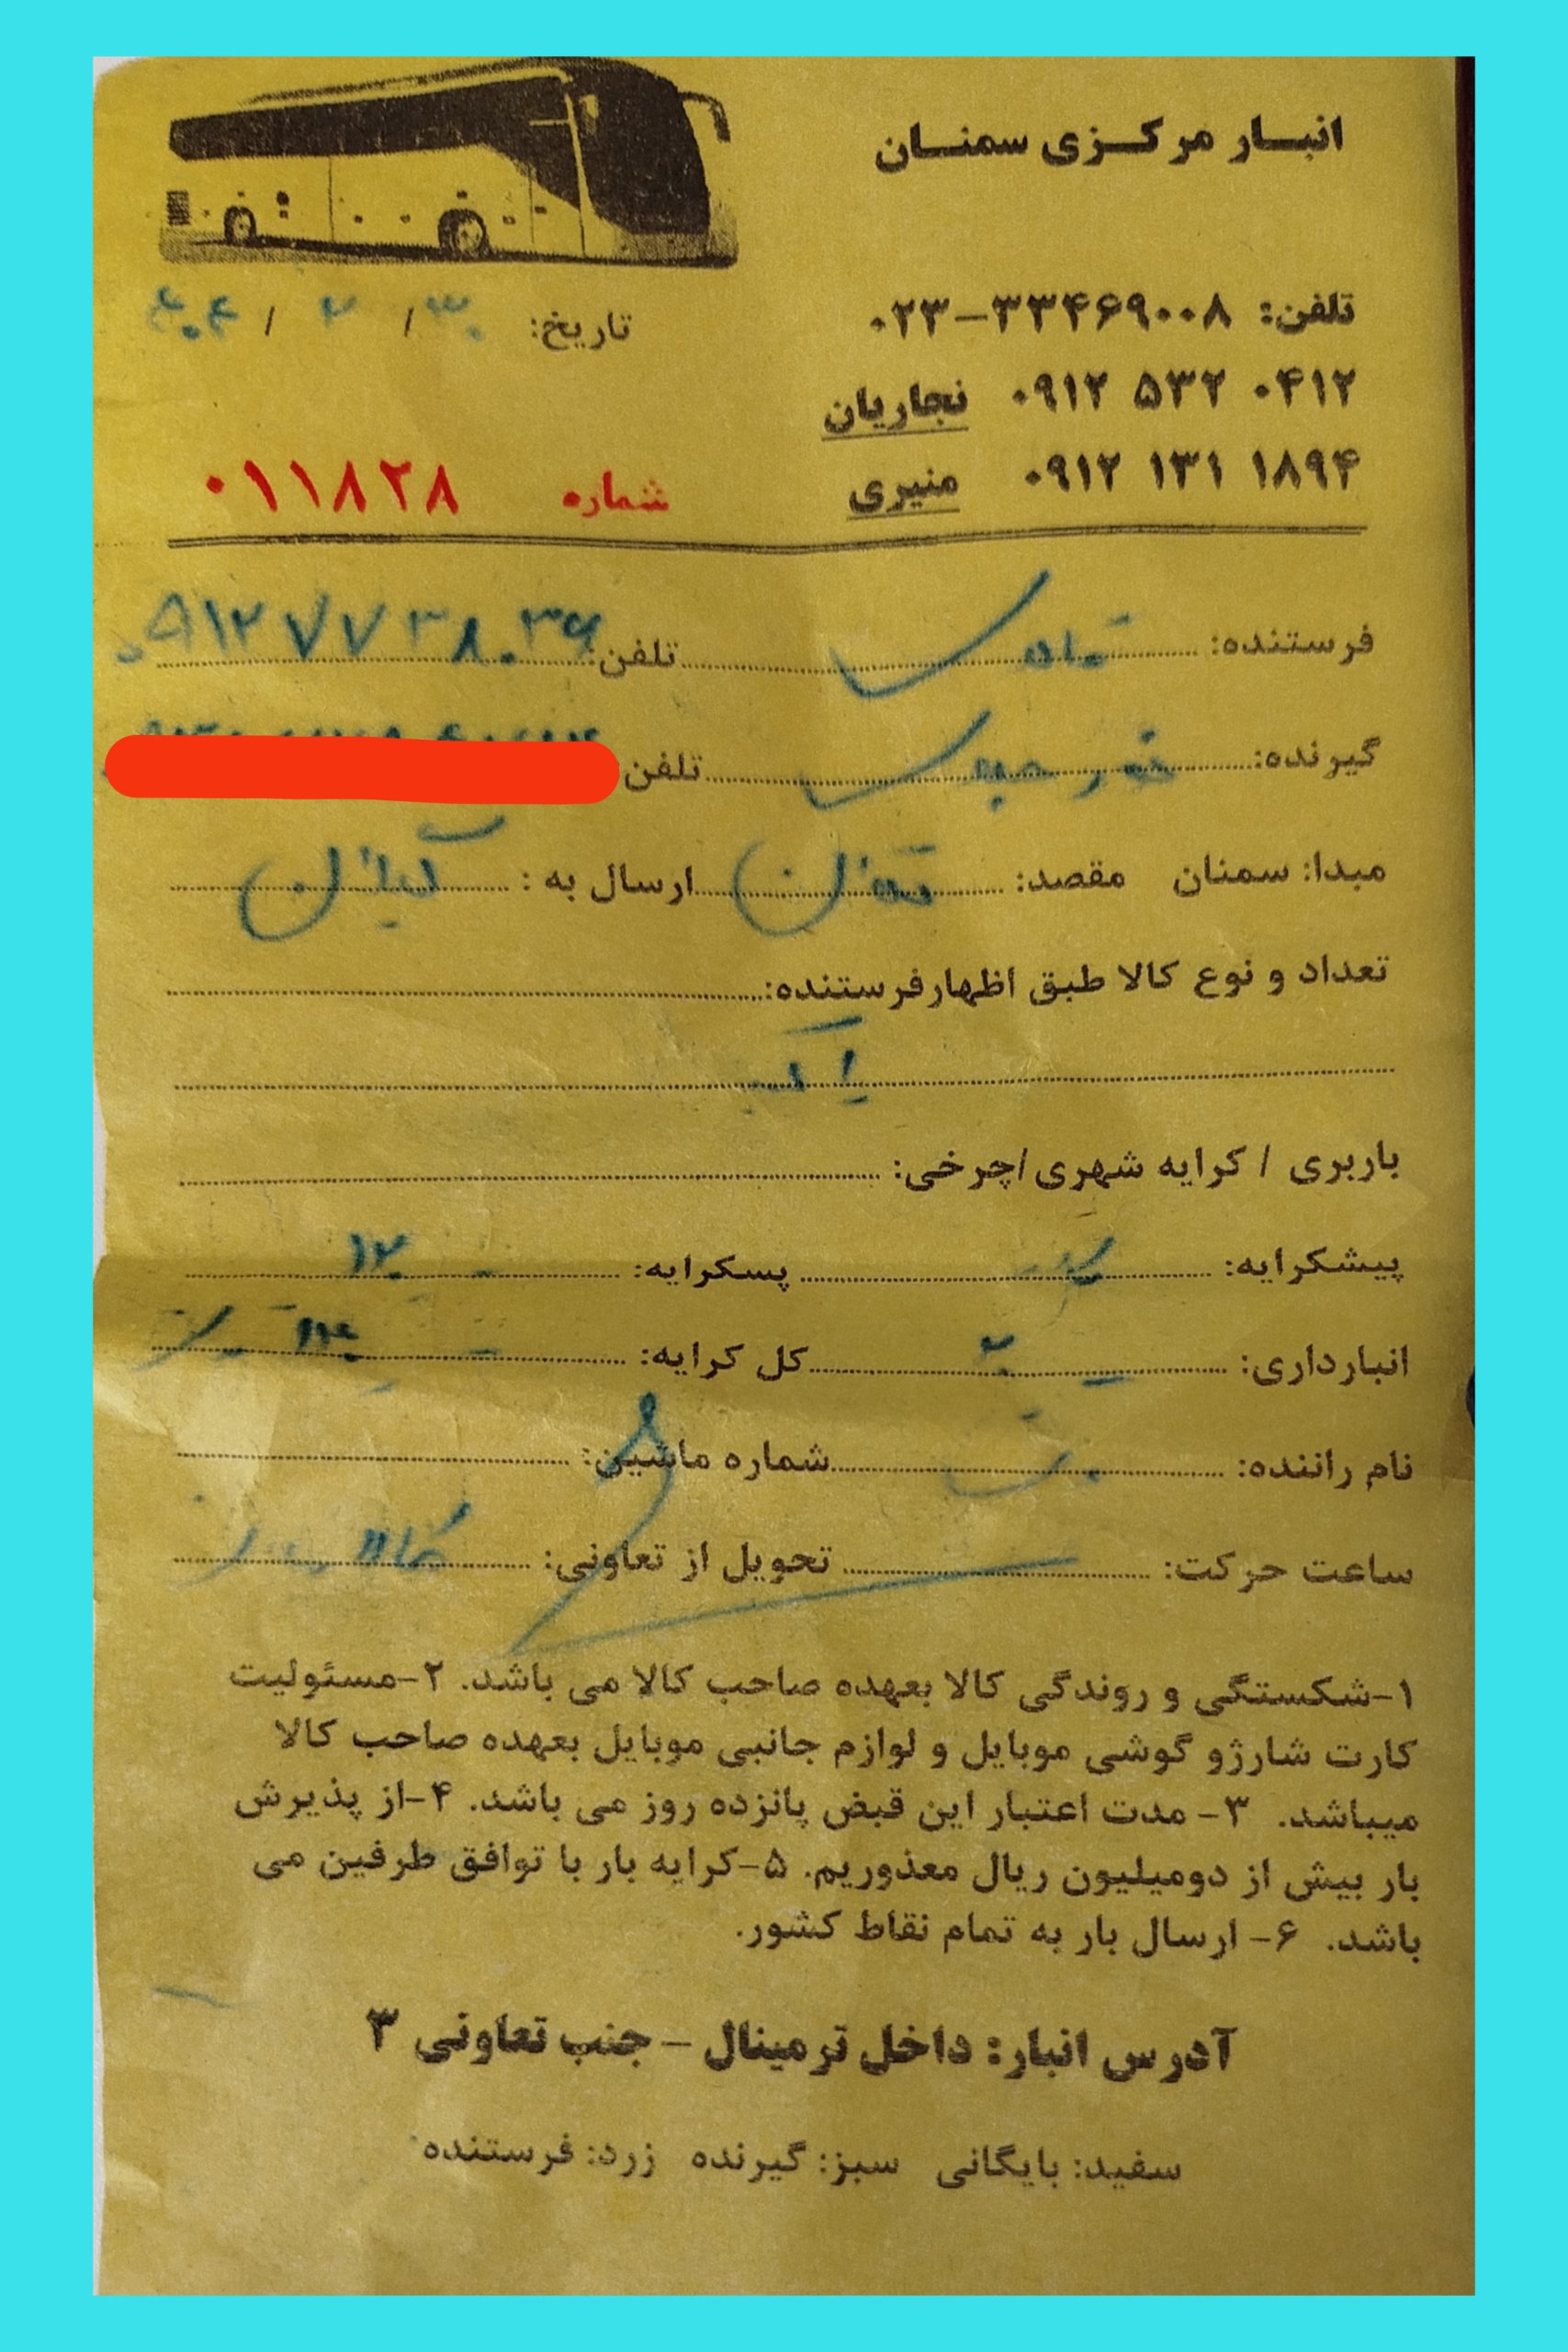 انبار مرکزی سمنان
تلفن: ۳۳۴۶۹۰۰۸-۰۲۳
۰۹۱۲ ۵۳۲ ۰۴۱۲ نجاریان
۰۹۱۲ ۱۳۱ ۱۸۹۴ منیری
تاریخ: ۳۰ / ۲ / ۴۰۴
شماره ۰۱۱۸۲۸
فرستنده: تلفن: ۰۹۱۲۷۷۳۸۰۳۶
گیرنده: تلفن
مبدا: سمنان مقصد: ارسال به :
تعداد و نوع کالا طبق اظهارفرستنده:
باربری / کرایه شهری/چرخی:
پیشکرایه: پسکرایه:
انبارداری: کل کرایه:
نام راننده: شماره ماشین:
ساعت حرکت: تحویل از تعاونی:
۱-شکستگی و روندگی کالا بعهده صاحب کالا می باشد. ۲-مسئولیت
کارت شارژو گوشی موبایل و لوازم جانبی موبایل بعهده صاحب کالا
میباشد. ۳- مدت اعتبار این قبض پانزده روز می باشد. ۴-از پذیرش
بار بیش از دومیلیون ریال معذوریم. ۵-کرایه بار با توافق طرفین می
باشد. ۶- ارسال بار به تمام نقاط کشور.
آدرس انبار: داخل ترمینال - جنب تعاونی ۳
سفید: بایگانی سبز: گیرنده زرد: فرستنده